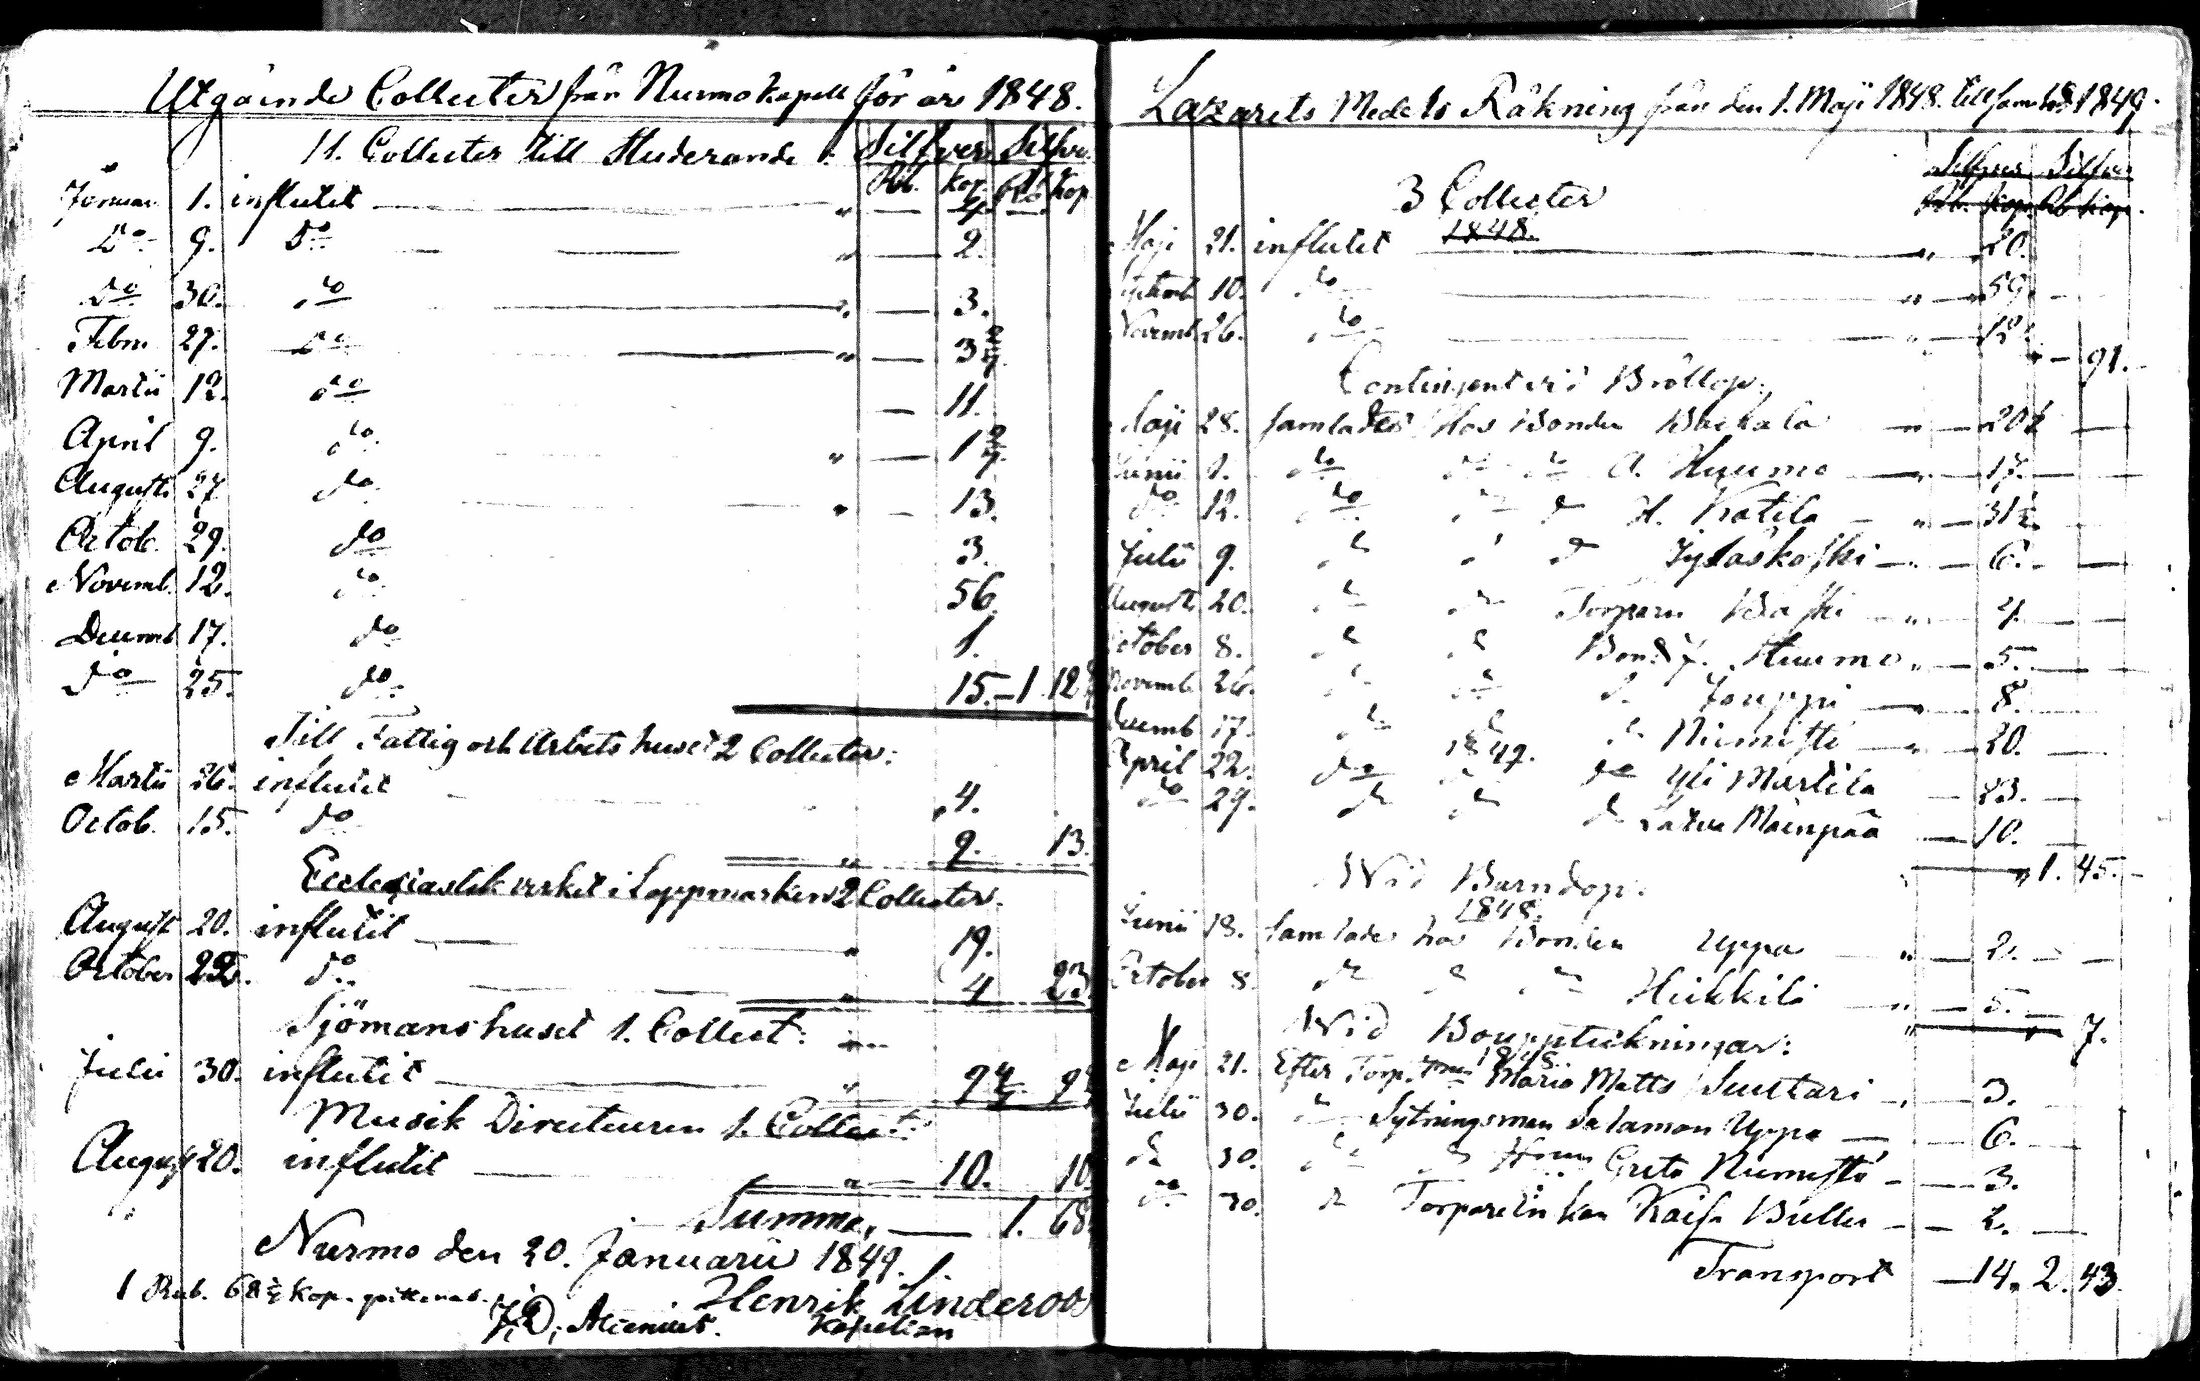 Utgående Collecter från Nurmo Kapell för år 1848.
11. Collecter till Studerande: Silfver Silfver
Rub. kop. Rb. kop
Januar. 1. influtit " — 4. —
Do 9. Do " — 2.
Do 30. do " — 3.
Febru. 27. Do " — 3 2/7.
Martii 12. do — 11.
April 9. do " — 1 2/7.
Augusti 27 do " — 13.
Octob. 29. do 3.
Novemb. 12. do 56.
Decemb. 17. do 1.
do 25. do 15. — 1. 12
Till Fattig och Arbetshuset 2 Collecter:
Martii 26. influtit 4.
Octob. 15. do " 9. 13.
Ecclesiastikverket i Lappmarken 2 Collecter.
August 20. influtit — " 19.
October 22. do " 4 23.
Sjömanshuset 1. Collect:
Julii 30. influtit — " 9 4/7 9
Musik Directeuren 1. Collect:
August 20. influtit — " — 10. 10
Summa, — 1. 68
Nurmo den 20. Januarii 1849.
Henrik Linderoos
1 Rub. 68 kop. qvitteras.
Kapellan
Lazarets Medels Räkning från den 1. Maji 1848. till samma 1849.
Silfver Silfver
3 Collecter Rb. kop. Rb kop.
1848.
Maji 21. influtit — " — 20.
Septemb. 10. do — " — 59.
Novemb. 26. do — " — 12.
" — 91.
Contingent vid Bröllop:
Maji 28. samlades hos Bonden — " — 20½ —
Junii 1. do do do A. Huumo — " — 17. —
do 12. do do do H. Kotila — " — 31½ —
Julii 9. do do do Jyläskoski — " — 6. —
Augusti 20. do do Torparn — " — 4. —
October 8. do do Bond. J. Huumo " — 5. —
Novemb. 26. do do do Jouppi — 8. —
Decemb. 17. do do do Niemistö — " — 20. —
1849.
April 22. do do do Yli Martila — 23. —
do 29. do do do Latva Mäenpää — 10. —
" 1. 45. —
Wid Barndop:
1848.
Junii 18. samlades hos Bonden Uppa " — 2. —
October 8. do do do Heikkilä — " — 5. —
" 7.
Wid Bouppteckningar:
1848
Maji 21. Efter Torp. Maria Matts Suutari — " — 3.
Julii 30. do Sytningsman Salamon Uppa — — 6. —
do 30. do do Greta Niemistö — — 3.
do 30. do Torpareenkan Kaisa — — 2. —
Transport — 14. 2. 43.